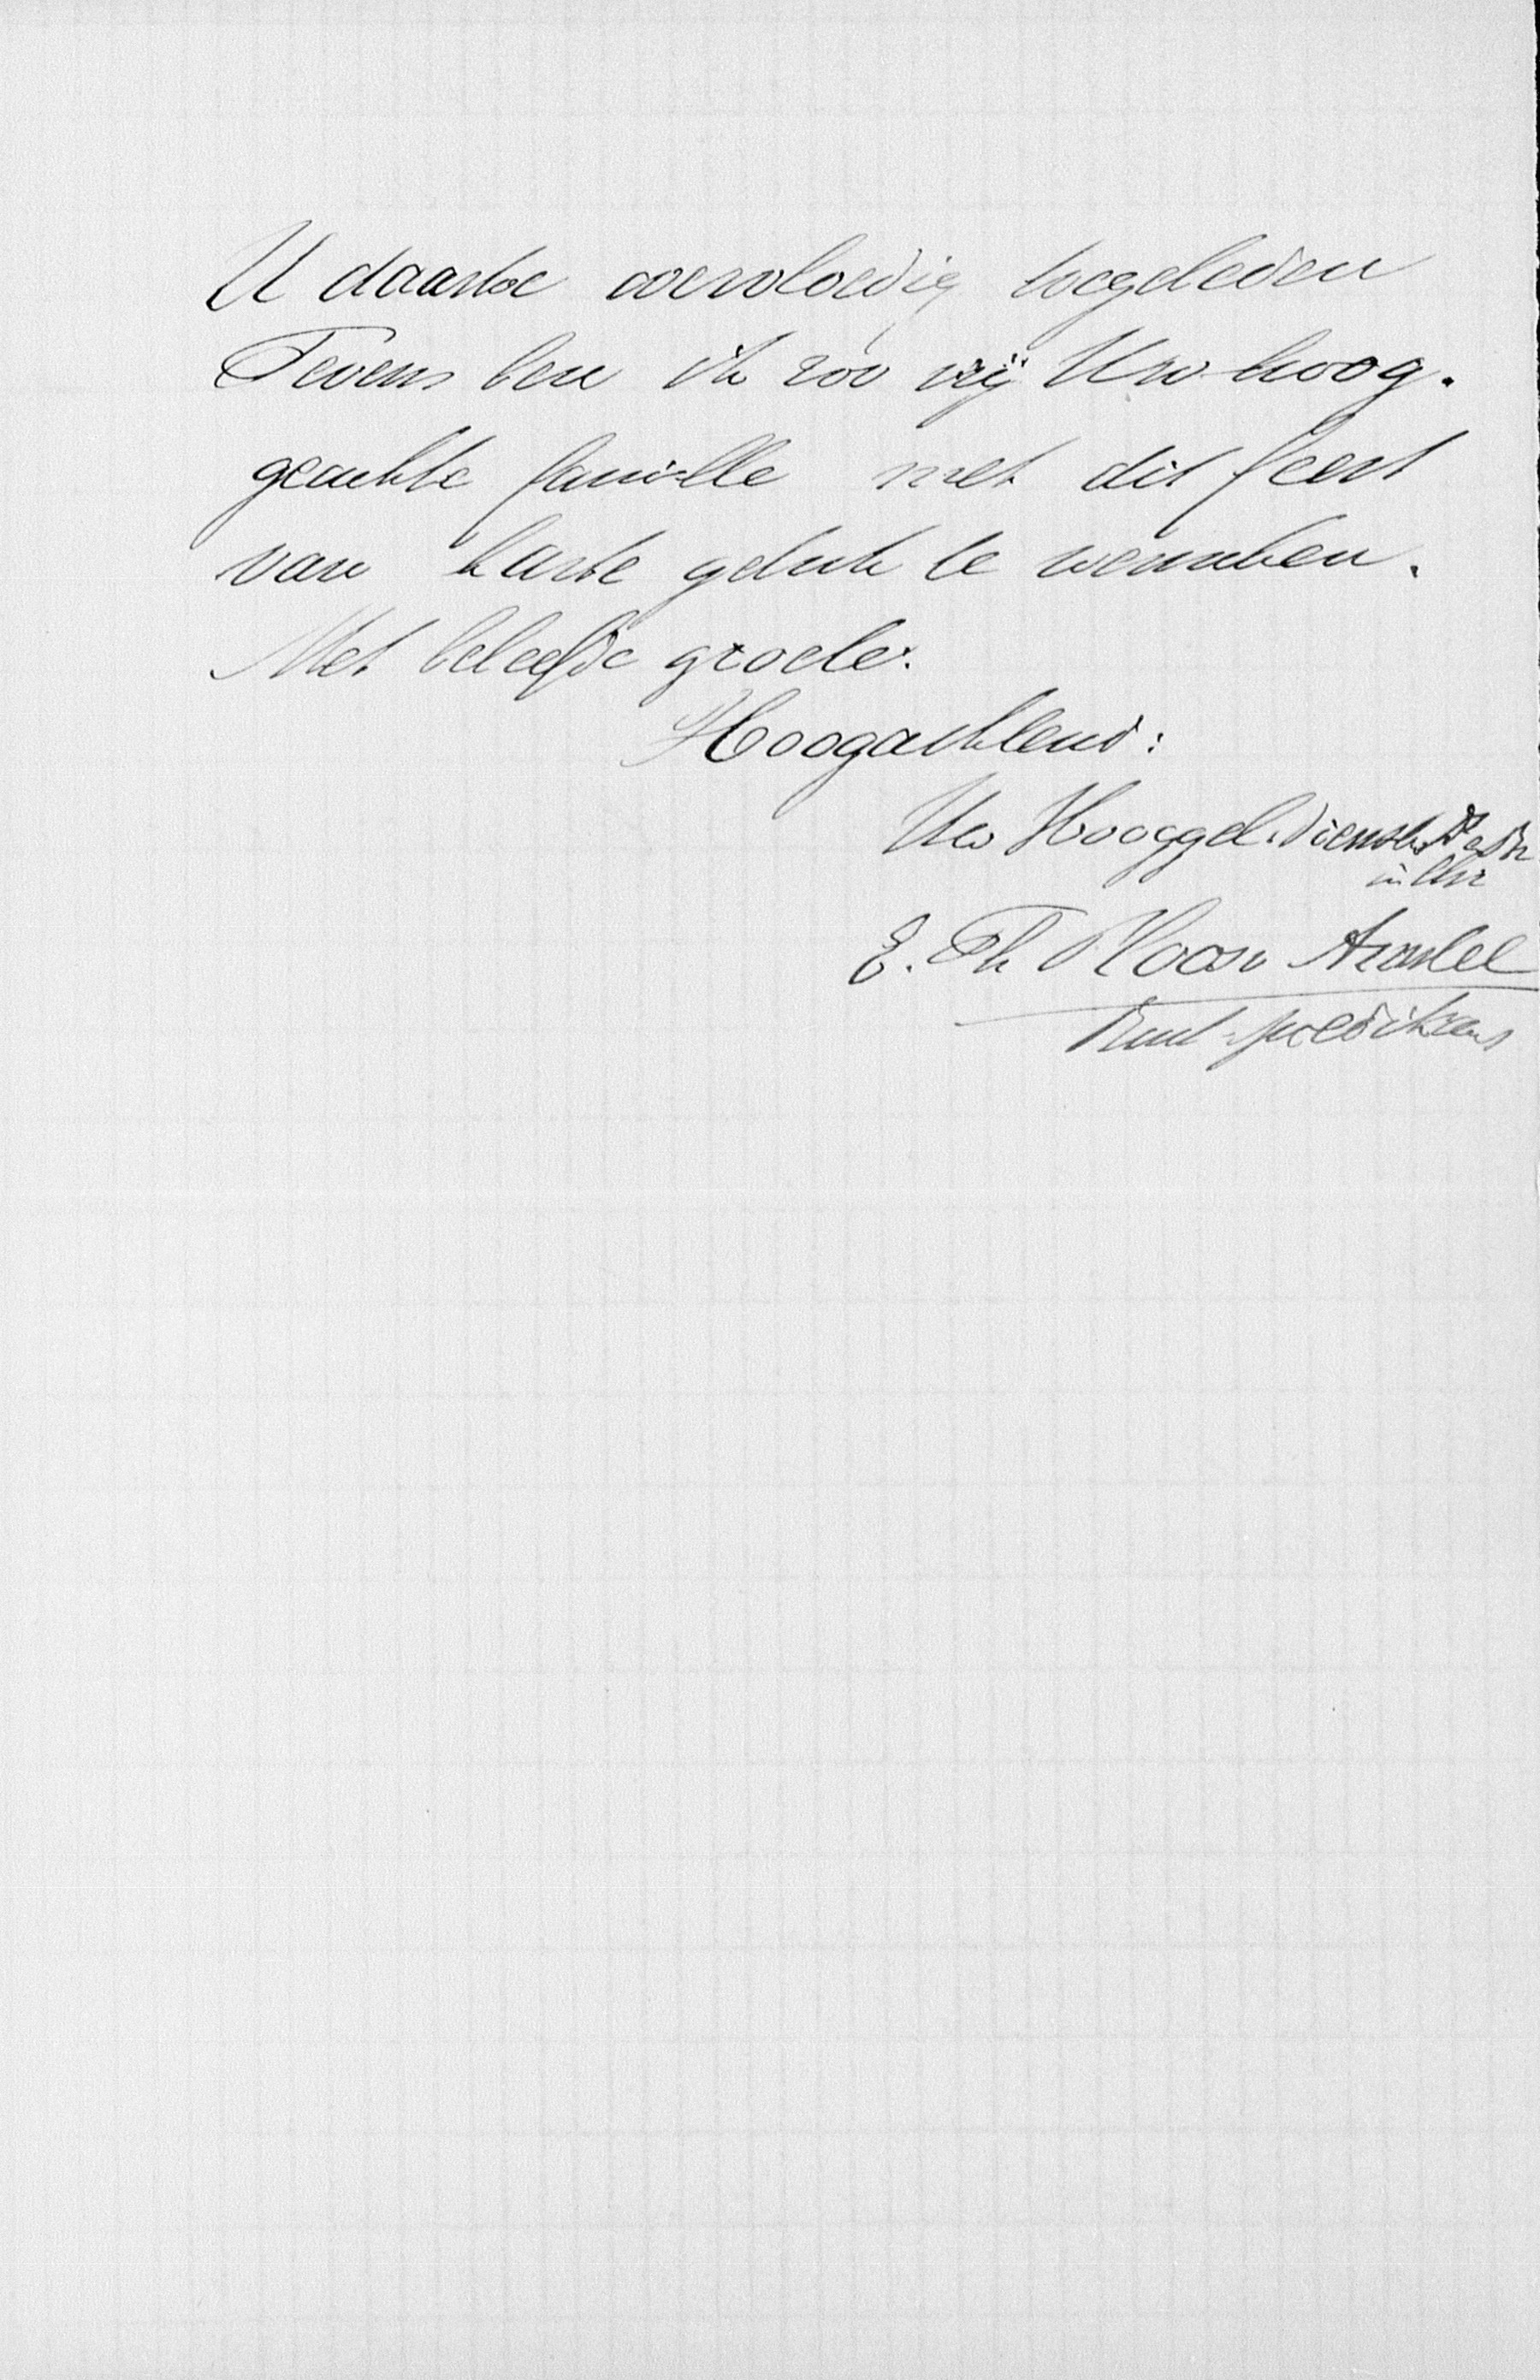 U daartoe overvloedig toegeleden
Tevens ben ik zóó vrij Uw hoog-
geachte familie met dit feest
van harte geluk te wenschen.
Met beleefde groete.
Hoogachtend:
Uw Hooggel. dienstw.
in Chr
E. Th
Emd-predikant